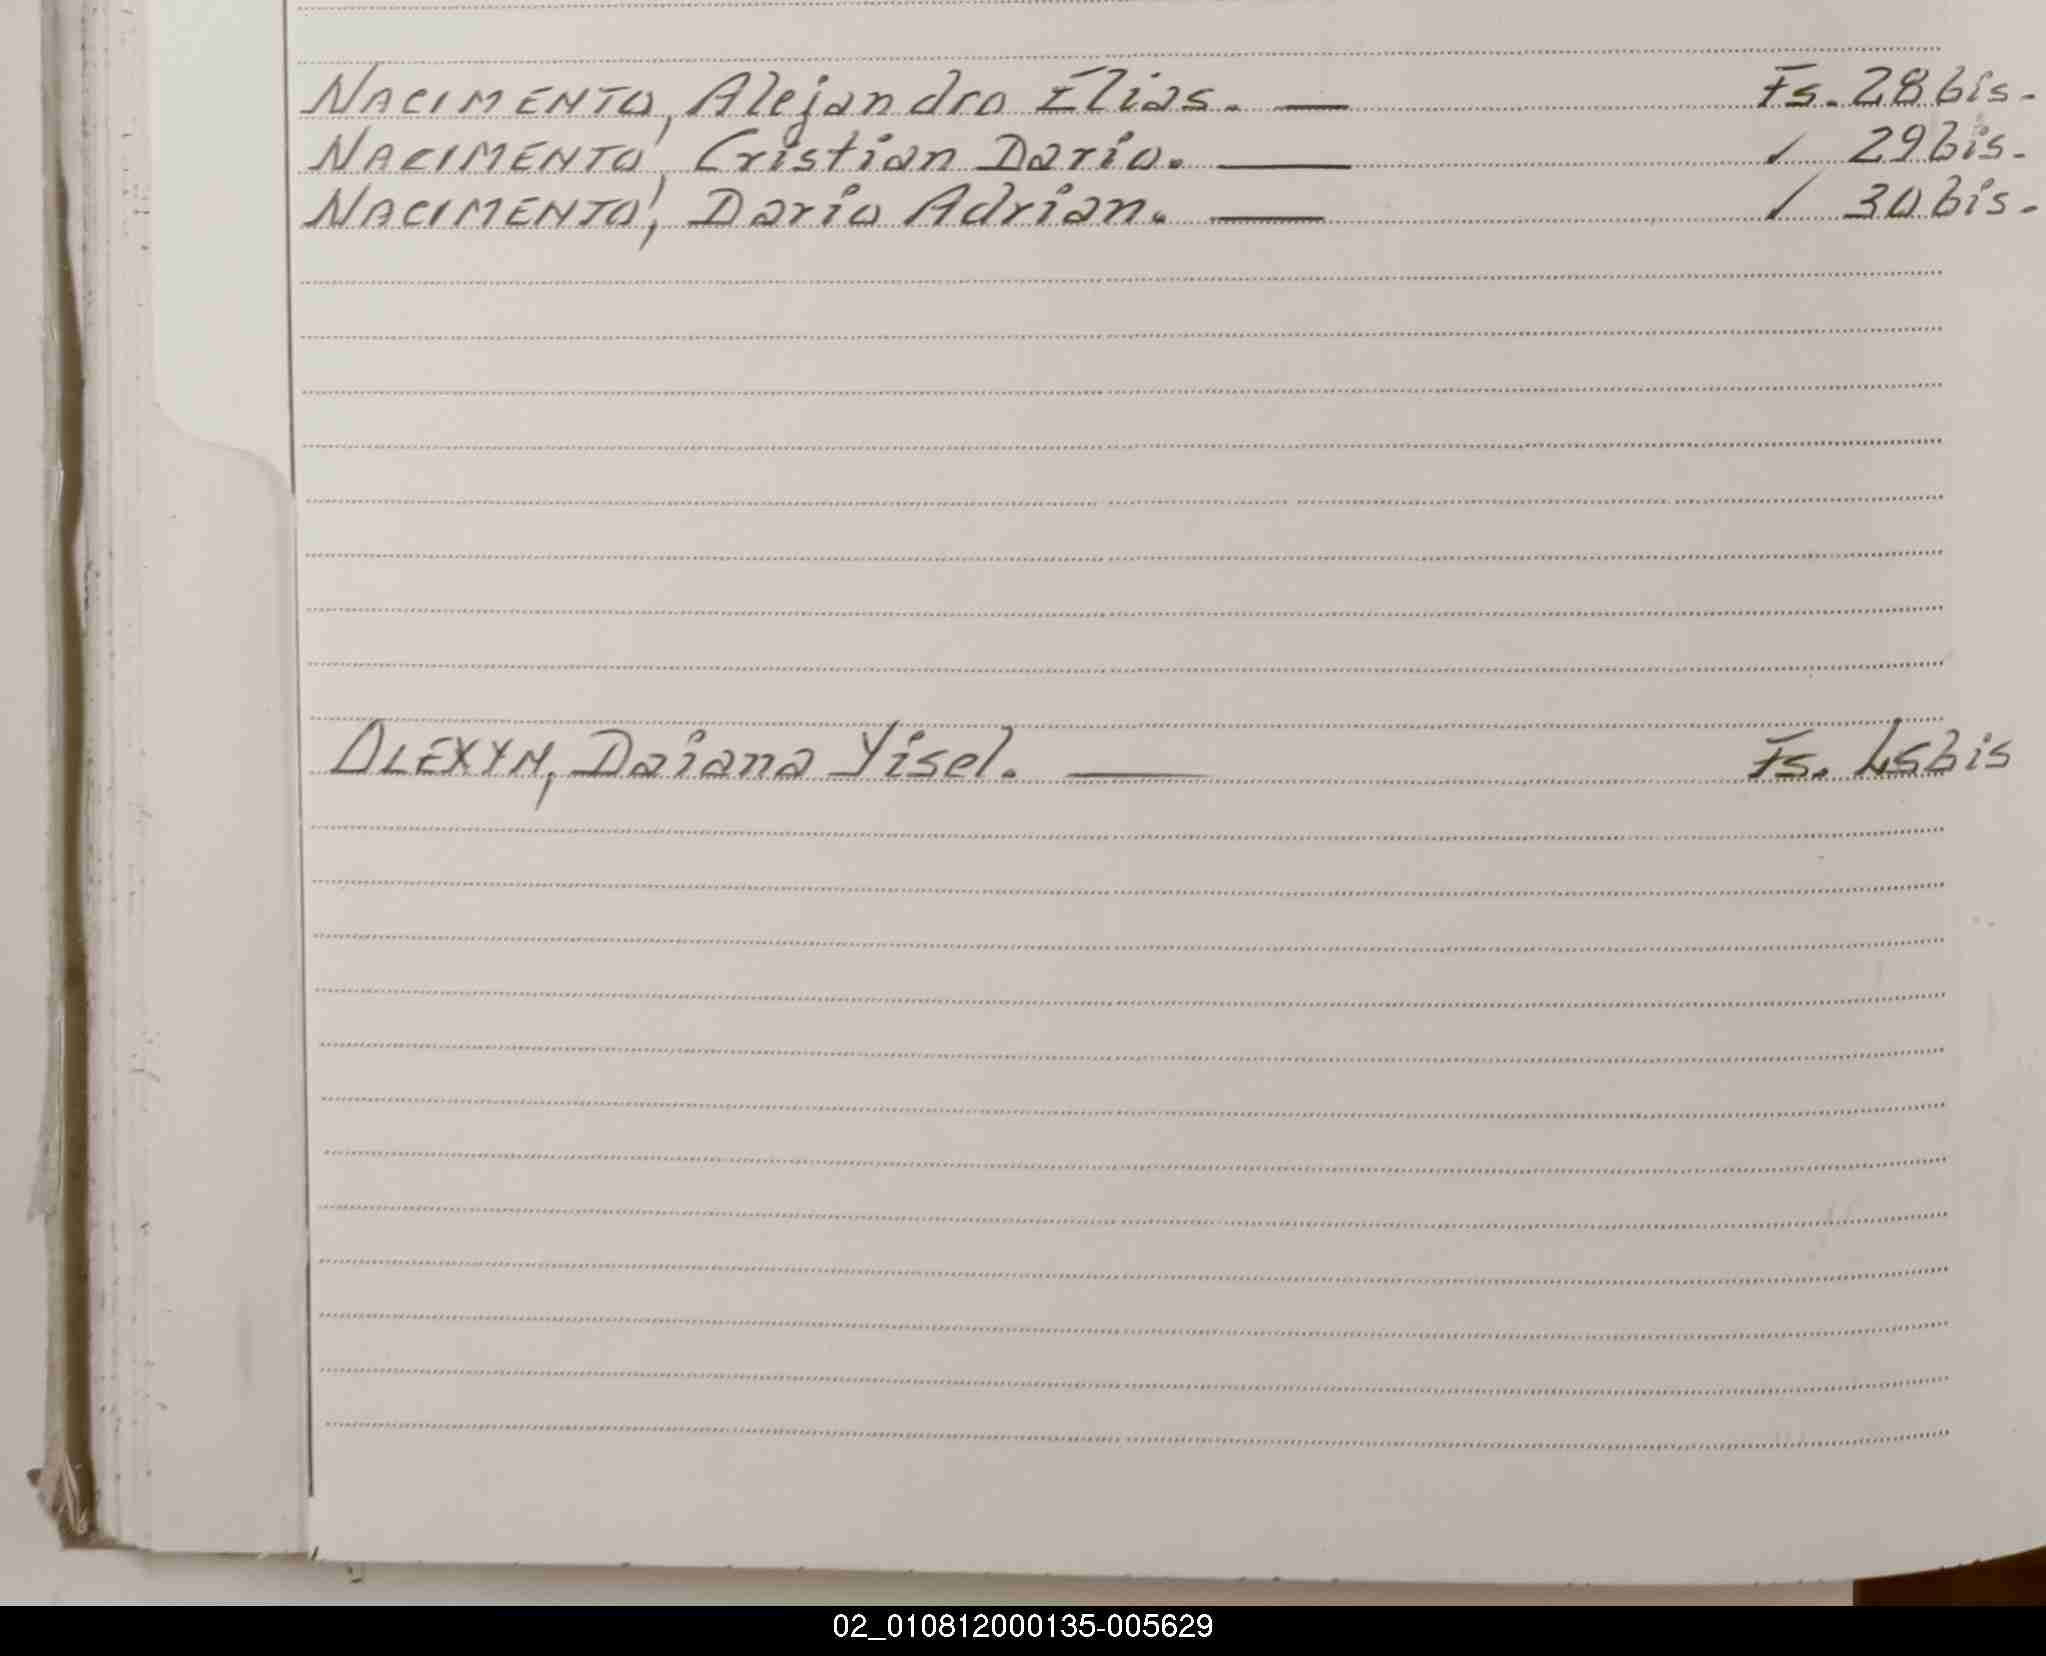 NACIMENTO, Alejandro Elias. — Fs. 28 bis.
NACIMENTO, Cristian Dario. — ✓ 29 bis.
NACIMENTO, Dario Adrian. — ✓ 30 bis.
OLEXYN, Daiana Yisel. — Fs. bis
02_010812000135-005629